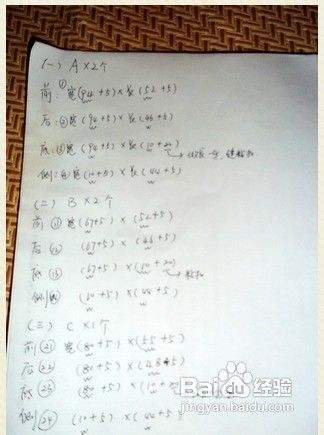 (一) A×2个
前:①宽(94+5)×长(52+5)
后:②宽(94+5)×长(46+5)
底:③宽(94+5)×长(10+20)
侧:④宽(10+5)×长(44+5)
(二) B×2个
前⑪宽(67+5)×(52+5)
后⑫(67+5)×(46+5)
底⑬(67+5)×(10+20)
侧⑭(10+5)×(44+5)
(三) C×1个
前㉑宽(80+5)×(55+5)
后㉒(80+5)×(48+5)
底㉓(80+5)×(10+
侧㉔(10+5)×(44+5)
Baidu 经验
jingyan.baidu.com